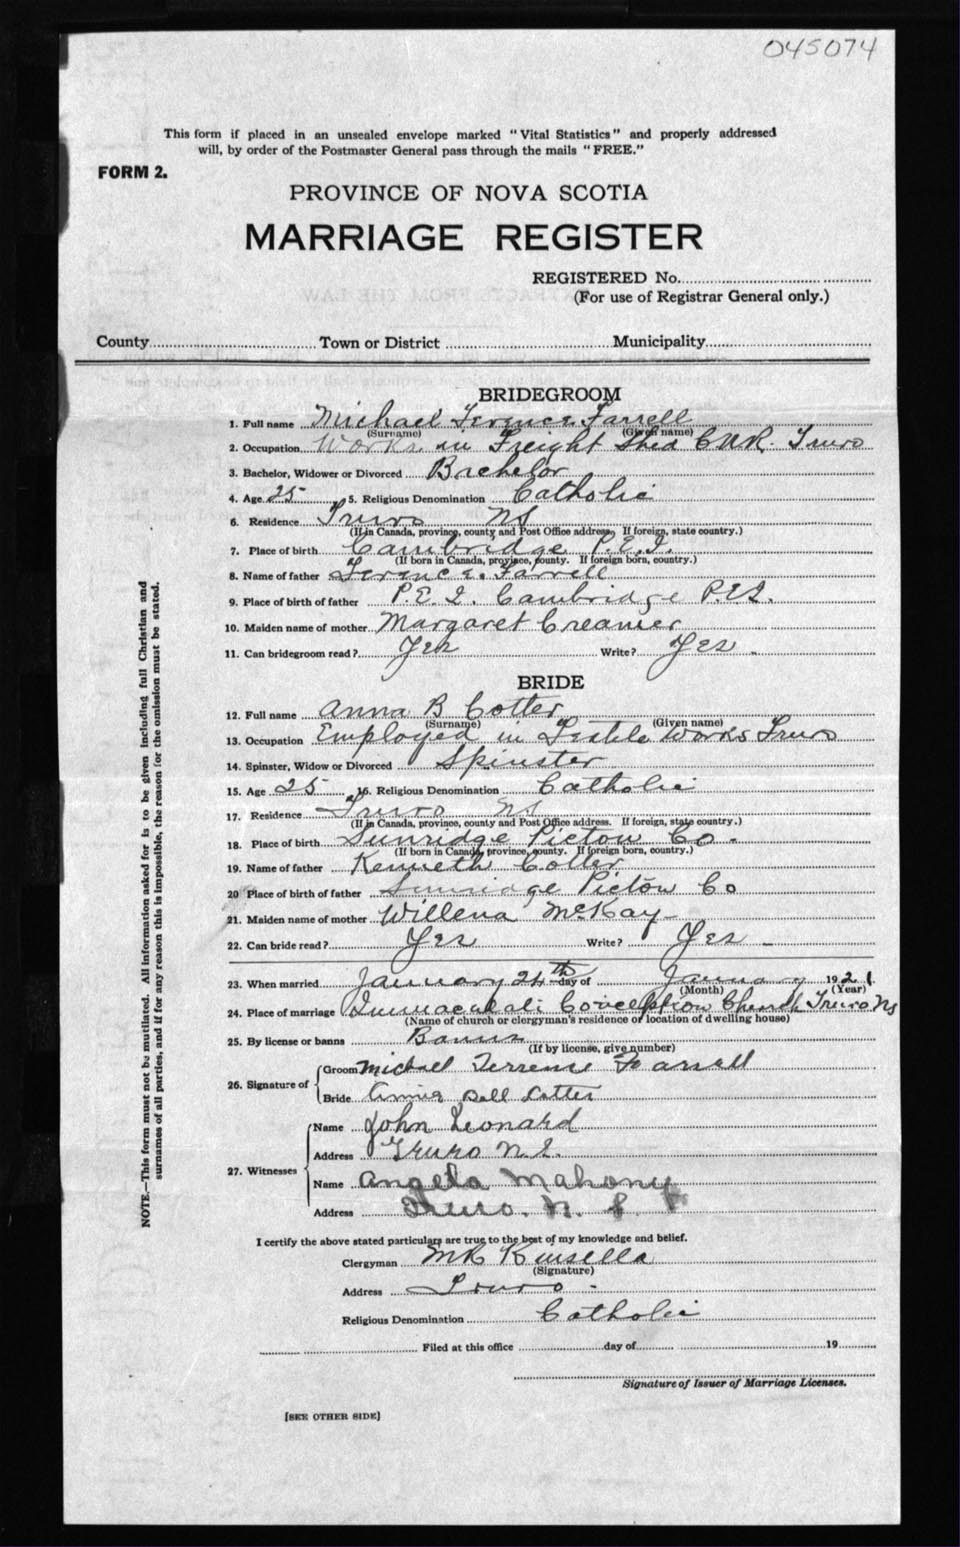 045074
This form if placed in an unsealed envelope marked "Vital Statistics" and properly addressed
will, by order of the Postmaster General pass through the mails "FREE."
FORM 2.
PROVINCE OF NOVA SCOTIA
MARRIAGE REGISTER
REGISTERED No.
(For use of Registrar General only.)
County Town or District Municipality
BRIDEGROOM
1. Full name Michael Terence Farrell
(Surname) (Given name)
2. Occupation Works in Freight Shed CNR. Truro
3. Bachelor, Widower or Divorced Bachelor
4. Age 25 5. Religious Denomination Catholic
6. Residence Truro NS
(If in Canada, province, county and Post Office address, If foreign, state country.)
7. Place of birth Cambridge P.E.I.
(If born in Canada, province, county. If foreign born, country.)
8. Name of father Terence Farrell
9. Place of birth of father P.E.I. Cambridge P.E.I.
10. Maiden name of mother Margaret Creamer
11. Can bridegroom read? Yes Write? Yes
BRIDE
12. Full name Anna B Cotter
(Surname) (Given name)
13. Occupation Employed in Textile Works Truro
14. Spinster, Widow or Divorced Spinster
15. Age 25 16. Religious Denomination Catholic
17. Residence Truro NS
(If in Canada, province, county and Post Office address. If foreign, state country.)
18. Place of birth Sunridge Pictou Co.
(If born in Canada, province, county. If foreign born, country.)
19. Name of father Kenneth Cotter
20 Place of birth of father Sunridge Pictou Co
21. Maiden name of mother Willena McKay
22. Can bride read? Yes Write? Yes
23. When married January 24th day of January 1921
(Month) (Year)
24. Place of marriage Immaculate Conception Church Truro NS
(Name of church or clergyman's residence or location of dwelling house)
25. By license or banns Banns
(If by license, give number)
26. Signature of Groom Michael Terrense Farrell
Bride Annie Bell Cotter
27. Witnesses Name John Leonard
Address Truro N.S.
Name Angela Mahony
Address Truro. N. S.
I certify the above stated particulars are true to the best of my knowledge and belief.
Clergyman Kinsella
(Signature)
Address Truro
Religious Denomination Catholic
Filed at this office day of 19
Signature of Issuer of Marriage Licenses.
[SEE OTHER SIDE]
NOTE.—This form must not be mutilated. All information asked for is to be given including full Christian and
surnames of all parties, and if for any reason this is impossible, the reason for the omission must be stated.